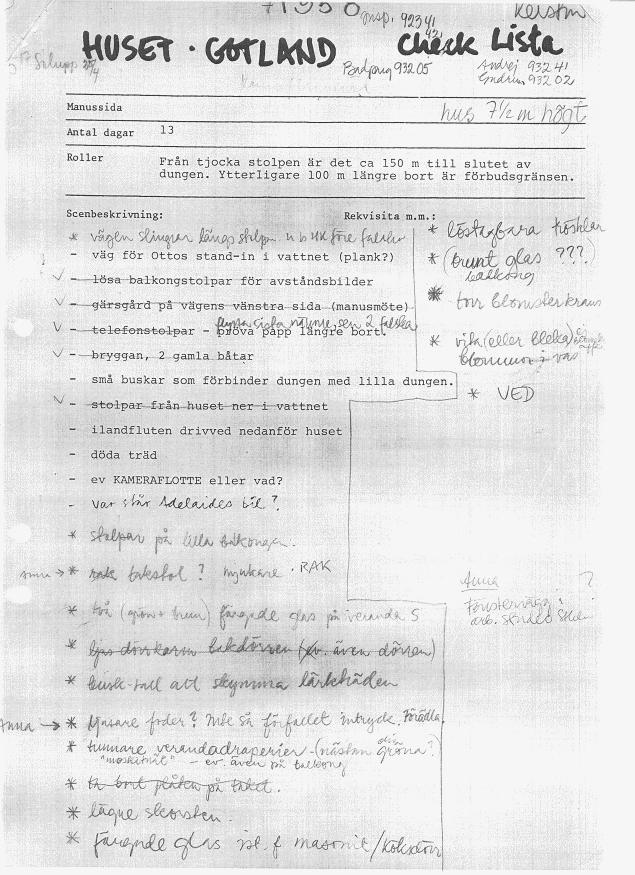 71950 insp. 92341
Kerstin
HUSET · GOTLAND check Lista
Badpaug 93205
Andrej 93241
93202
hus 7½ m högt
Manussida
Antal dagar 13
Roller Från tjocka stolpen är det ca 150 m till slutet av
dungen. Ytterligare 100 m längre bort är förbudsgränsen.
Scenbeskrivning: Rekvisita m.m.:
* vägen slingrar längs stolpar
- väg för Ottos stand-in i vattnet (plank?)
- lösa balkongstolpar för avståndsbilder
- gärsgård på vägens vänstra sida (manusmöte)
flytta sista närmre, sen 2 falska
- telefonstolpar - pröva papp längre bort.
- bryggan, 2 gamla båtar
- små buskar som förbinder dungen med lilla dungen.
- stolpar från huset ner i vattnet
- ilandfluten drivved nedanför huset
- döda träd
- ev KAMERAFLOTTE eller vad?
- var står Adelaides bil?
* stolpar på lilla balkongen.
* rak takstol? mjukare · RAK
* två (grön + brun) färgade glas på veranda S
* ljus dörrkarm bakdörren (ev. även dörren)
* busk-tall att skymma lärkträden
Anna → * ljusare foder? Inte så förfallet intryck. Förädla
* tunnare verandadraperier - (nästan gröna?
"moskitnät" - ev. även på balkong
* ta bort plåten på taket.
* lägre skorsten.
* färgade glas ist. f masonit/köksdörr
* löstagbara
* (brunt glas ???
balkong
* torr blomsterkrans
* vita (eller bleka)
blommor i vas
* VED
Anna ?
Fönstervägg: